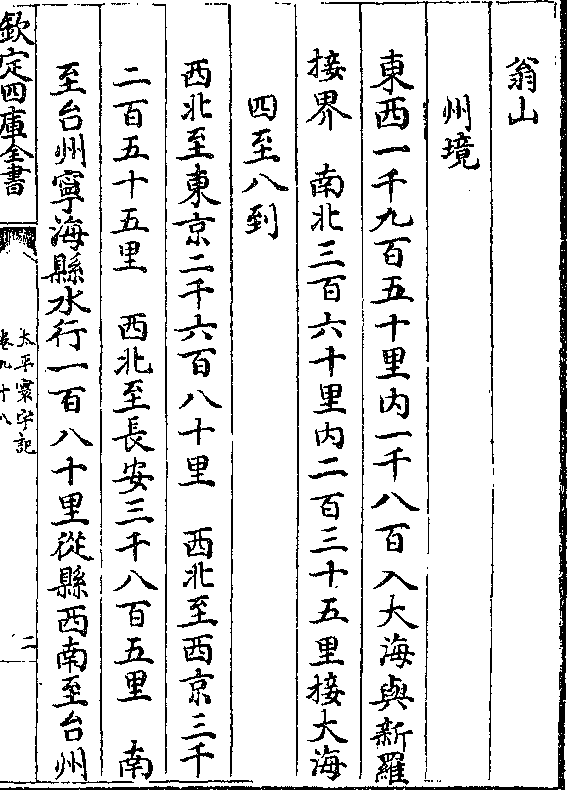 翁山
州境
東西一千九百五十里内一千八百入大海與新羅
接界　南北三百六十里内二百三十五里接大海
四至八到
西北至東京二千六百八十里　西北至西京三千
二百五十五里　西北至長安三千八百五里　南
至台州寧海縣水行一百八十里從縣西南至台州
欽定四庫全書
太平寰宇記
卷九十八
二